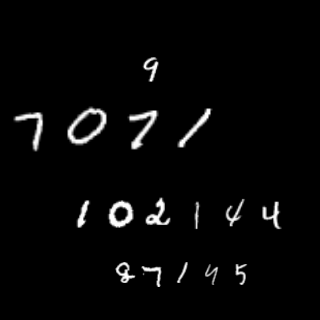 9
7071
102144
87145